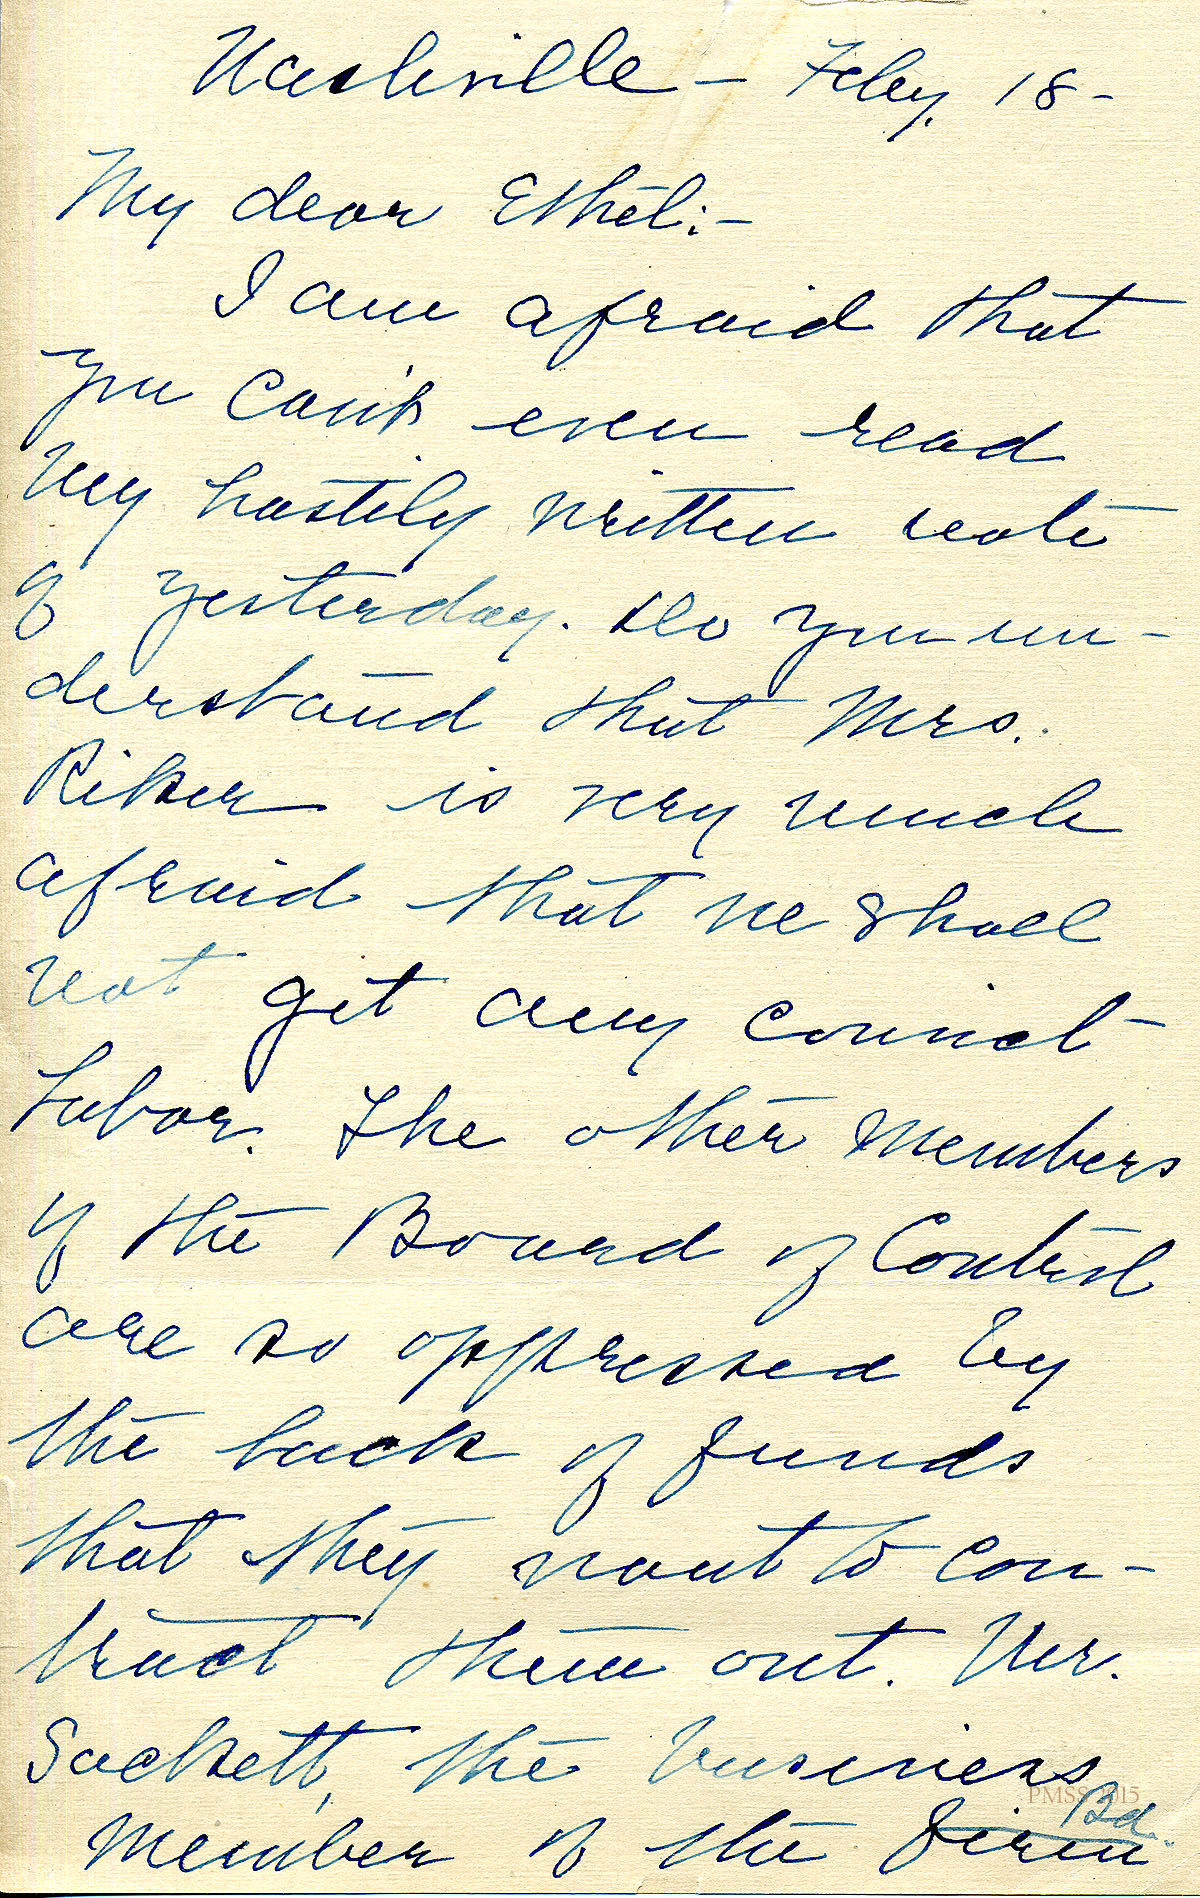 Nashville - Feby. 18 -
My dear Ethel:-
I am afraid that
you can't even read
my hastily written note
of yesterday. Do you un-
derstand that Mrs.
Riker is very much
afraid that we shall
not get any convict-
labor. The other members
of the Board of Control
are so oppressed by
the lack of funds
that they want to con-
tract them out. Mr.
Sackett, the business
PMSS 2015
Bd.
member of the firm